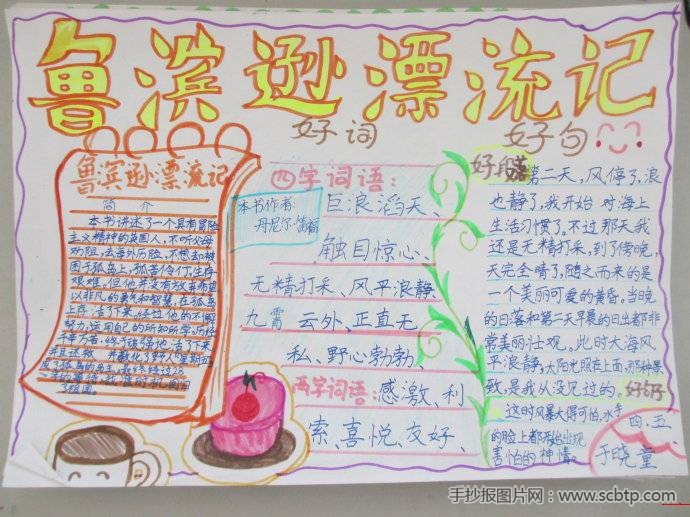 鲁滨逊漂流记
好词
好句
鲁滨逊漂流记
简介
本书讲述了一个具有冒险
主义精神的英国人，不听父母
劝阻，去海外历险，不想却被
困于孤岛上，孤苦伶仃，生存
艰难。但他并没有放弃希望
以非凡的勇气和智慧，在孤岛
上存活了下来。经过他的不懈
努力，运用自己的所知所学，历经
千辛万苦，终于顽强地活了下来
并且还救
本书作者：
丹尼尔·笛福
四字词语：
巨浪滔天、
触目惊心、
无精打采、风平浪静、
九霄云外、正直无
私、野心勃勃、
两字词语：感激、利
索、喜悦、友好、
好段
第二天，风停了，浪
也静了，我开始对海上
生活习惯了。不过那天我
还是无精打采，到了傍晚，
天完全晴了，随之而来的是
一个美丽可爱的黄昏。当晚
的日落和第二天早晨的日出都非
常美丽壮观。此时大海风
平浪静，太阳光照在上面，那种景
致，是我从没见过的。
好句
这时风暴大得可怕，水手
的脸上都开始出现
害怕的神情。
四.五
于晓童
手抄报图片网：www.scbtp.com